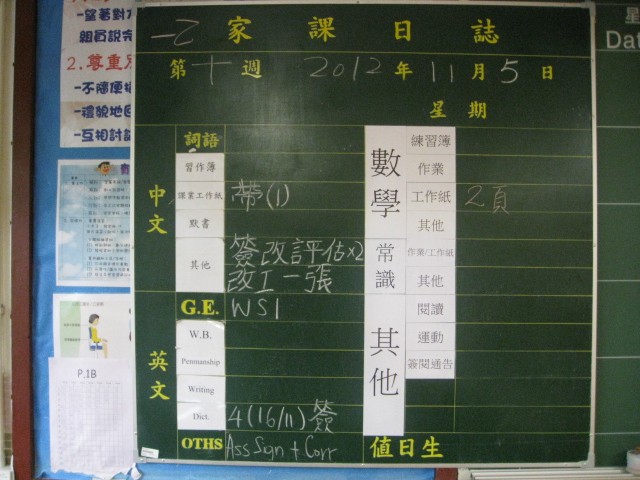 一乙 家課日誌
第十週 2012年11月5日
星期
中文
詞語
習作簿
課業工作紙 帶(1)
默書
其他 簽改評估x2
改工一張
英文
G.E. WS1
W.B.
Penmanship
Writing
Dict. 4(16/11)簽
OTHS Ass Sign + Corr
數學
練習簿
作業
工作紙 2頁
其他
常識
作業/工作紙
其他
其他
閱讀
運動
簽閱通告
值日生
-望著對
組員說完
2.尊重別
-不隨便
-禮貌地
-互相討
P.1B
Dat